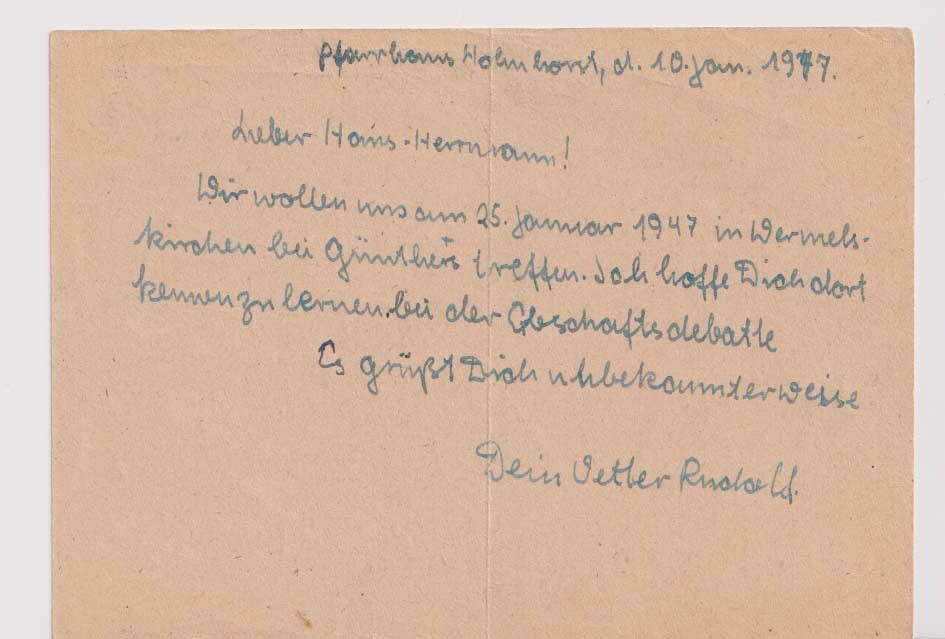 Pfarrhaus Holmhorst, d. 10. Jan. 1947.
Lieber Hans-Herrmann!
Wir wollen uns am 25. Januar 1947 in Wermels-
kirchen bei Günthers treffen. Ich hoffe Dich dort
kennenzulernen bei der Gbschaftsdebatte
Es grüßt Dich unbekannterweise
Dein Vetter Rudolf.